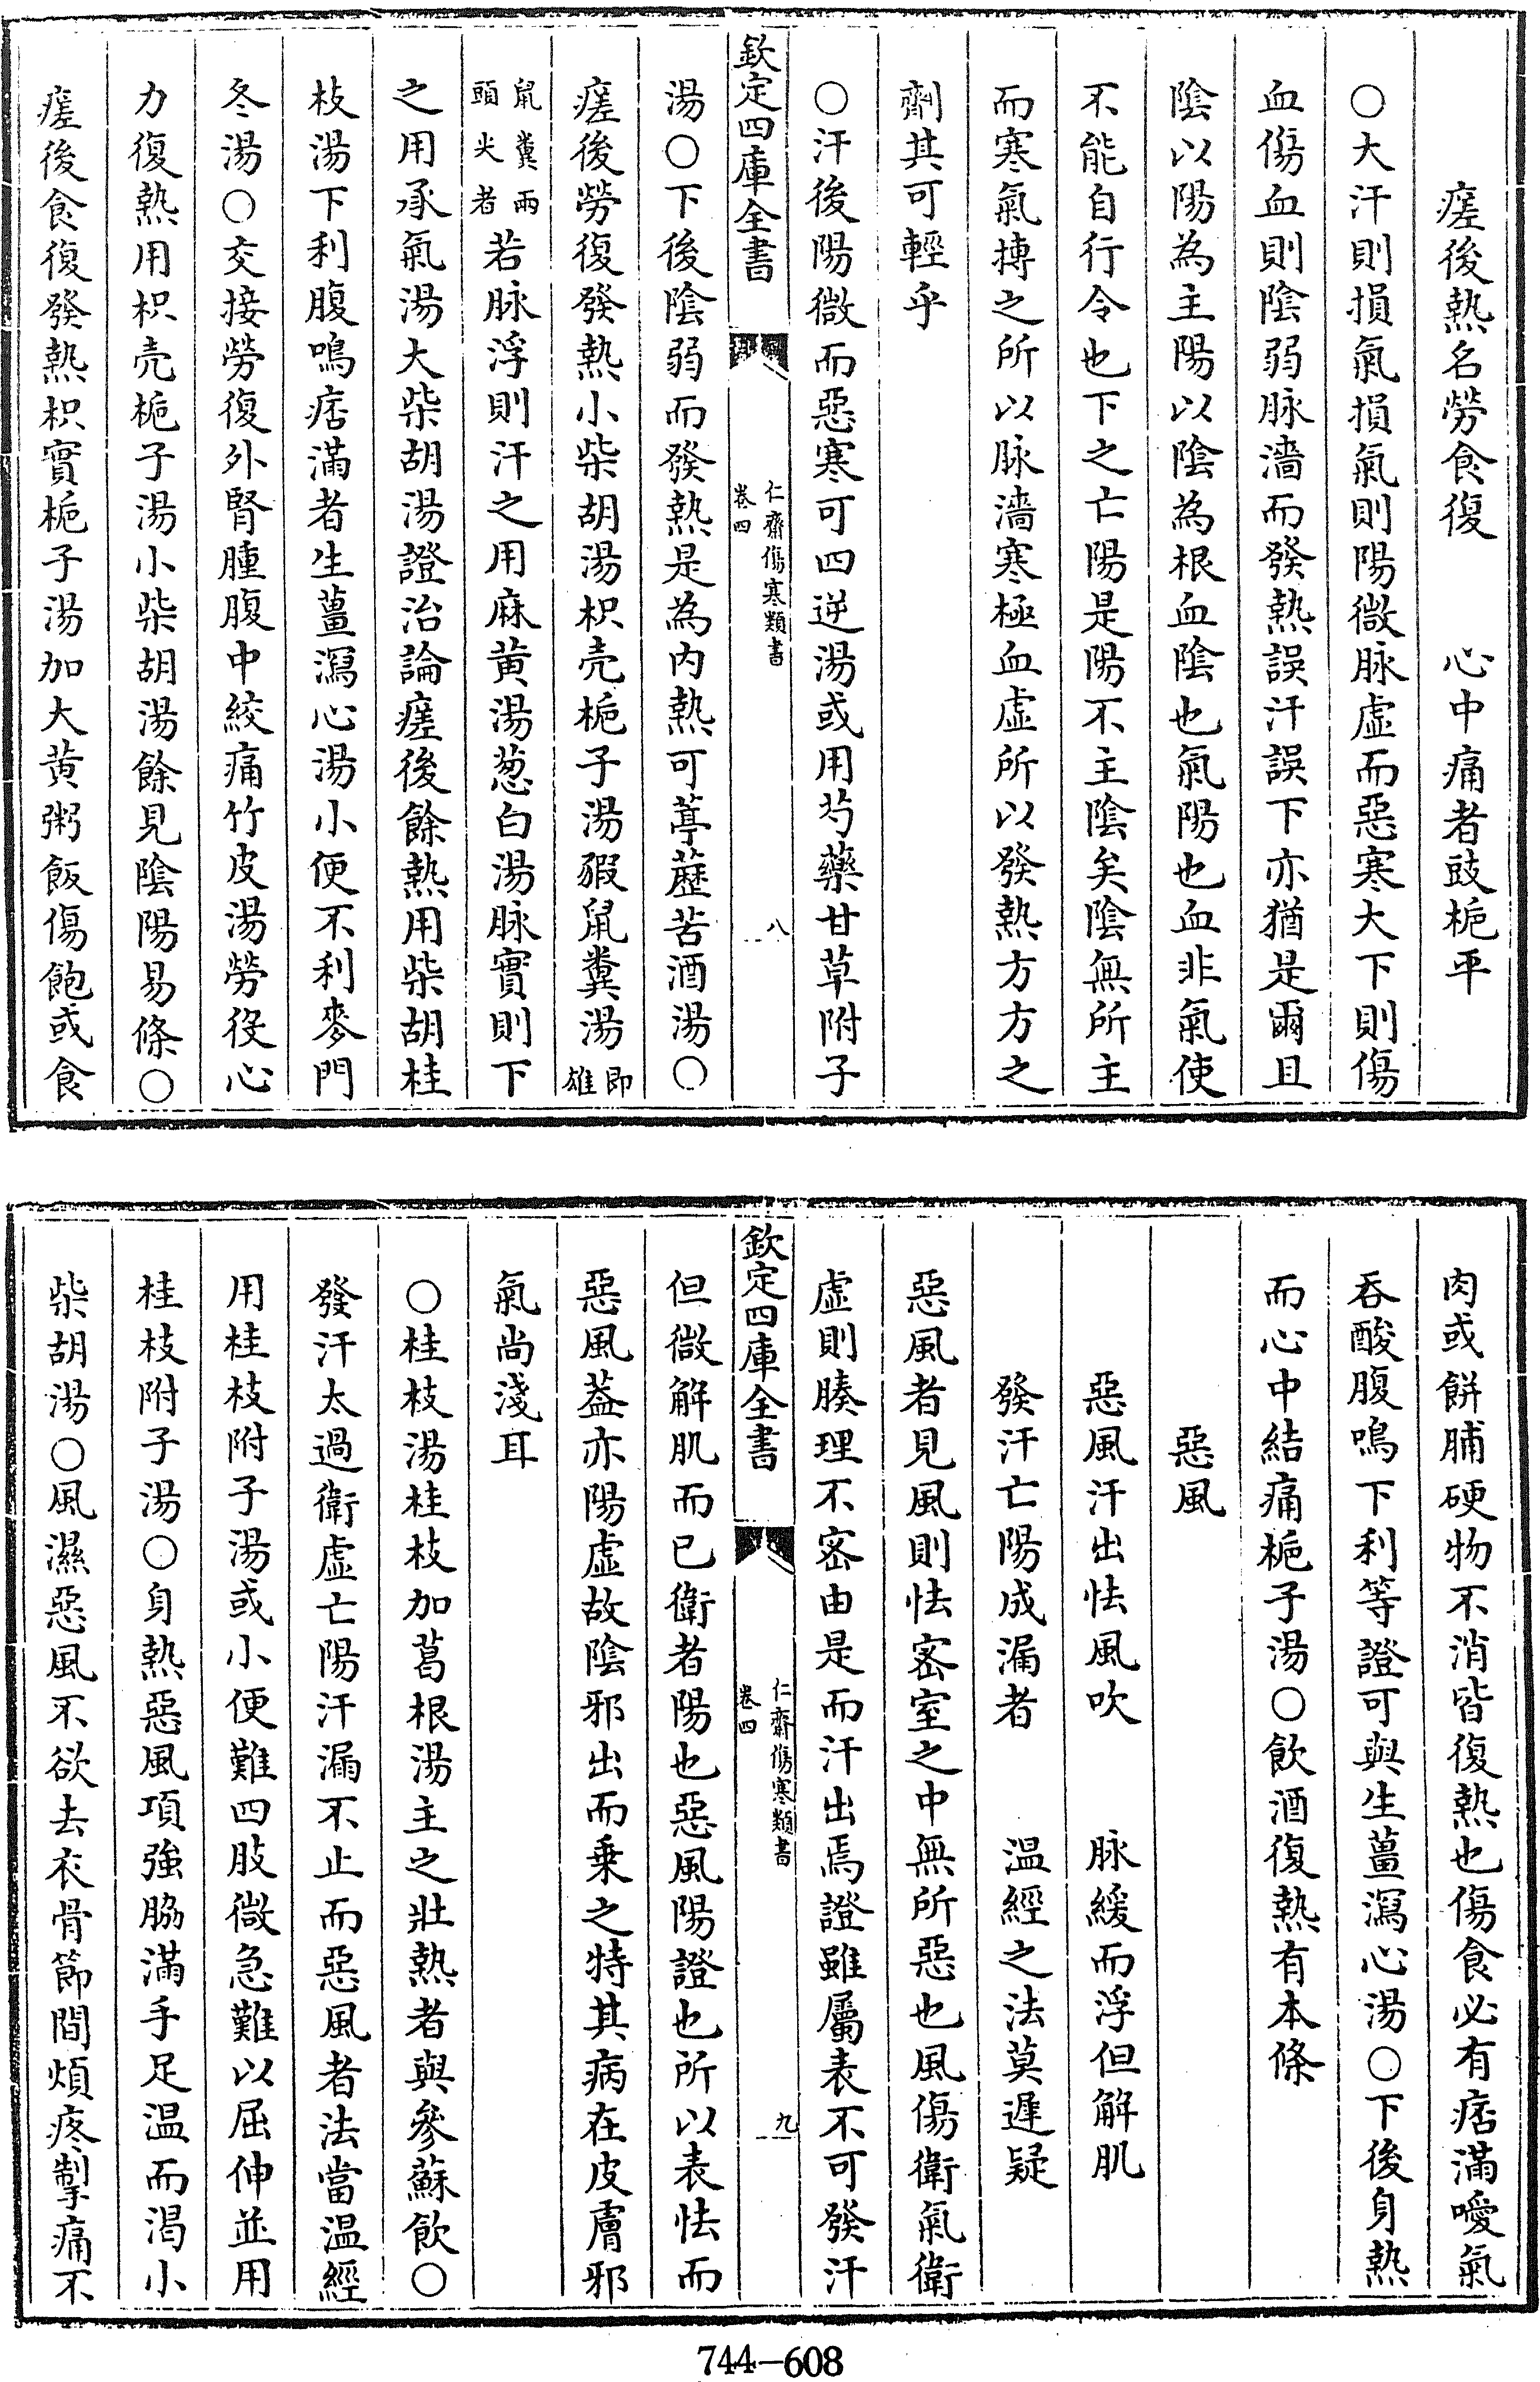 瘥後熱名勞食復　　心中痛者豉梔平
○大汗則損氣損氣則陽微脉虛而惡寒大下則傷
血傷血則陰弱脉濇而發熱誤汗誤下亦猶是爾且
陰以陽為主陽以陰為根血陰也氣陽也血非氣使
不能自行令也下之亡陽是陽不主陰矣陰無所主
而寒氣摶之所以脉濇寒極血虛所以發熱方方之
劑其可輕乎
○汗後陽微而惡寒可四逆湯或用芍藥甘草附子
欽定四庫全書　仁齋傷寒類書　卷四　八
湯○下後陰弱而發熱是為内熱可葶藶苦酒湯○
瘥後勞復發熱小柴胡湯枳壳梔子湯豭鼠糞湯即雄
鼠糞兩頭尖者若脉浮則汗之用麻黄湯葱白湯脉實則下
之用承氣湯大柴胡湯證治論瘥後餘熱用柴胡桂
枝湯下利腹鳴痞滿者生薑瀉心湯小便不利麥門
冬湯○交接勞復外腎腫腹中絞痛竹皮湯勞役心
力復熱用枳壳梔子湯小柴胡湯餘見陰陽易條○
瘥後食復發熱枳實梔子湯加大黄粥飯傷飽或食
肉或餅脯硬物不消皆復熱也傷食必有痞滿噯氣
吞酸腹鳴下利等證可與生薑瀉心湯○下後身熱
而心中結痛梔子湯○飲酒復熱有本條
惡風
惡風汗出怯風吹　　脉緩而浮但解肌
發汗亡陽成漏者　　温經之法莫遲疑
惡風者見風則怯密室之中無所惡也風傷衛氣衛
虛則腠理不密由是而汗出焉證雖屬表不可發汗
欽定四庫全書　仁齋傷寒類書　卷四　九
但微解肌而已衛者陽也惡風陽證也所以表怯而
惡風葢亦陽虛故陰邪出而乗之特其病在皮膚邪
氣尚淺耳
○桂枝湯桂枝加葛根湯主之壯熱者與參蘇飲○
發汗太過衛虛亡陽汗漏不止而惡風者法當温經
用桂枝附子湯或小便難四肢微急難以屈伸並用
桂枝附子湯○身熱惡風項強脇滿手足温而渴小
柴胡湯○風濕惡風不欲去衣骨節間煩疼掣痛不
744-608